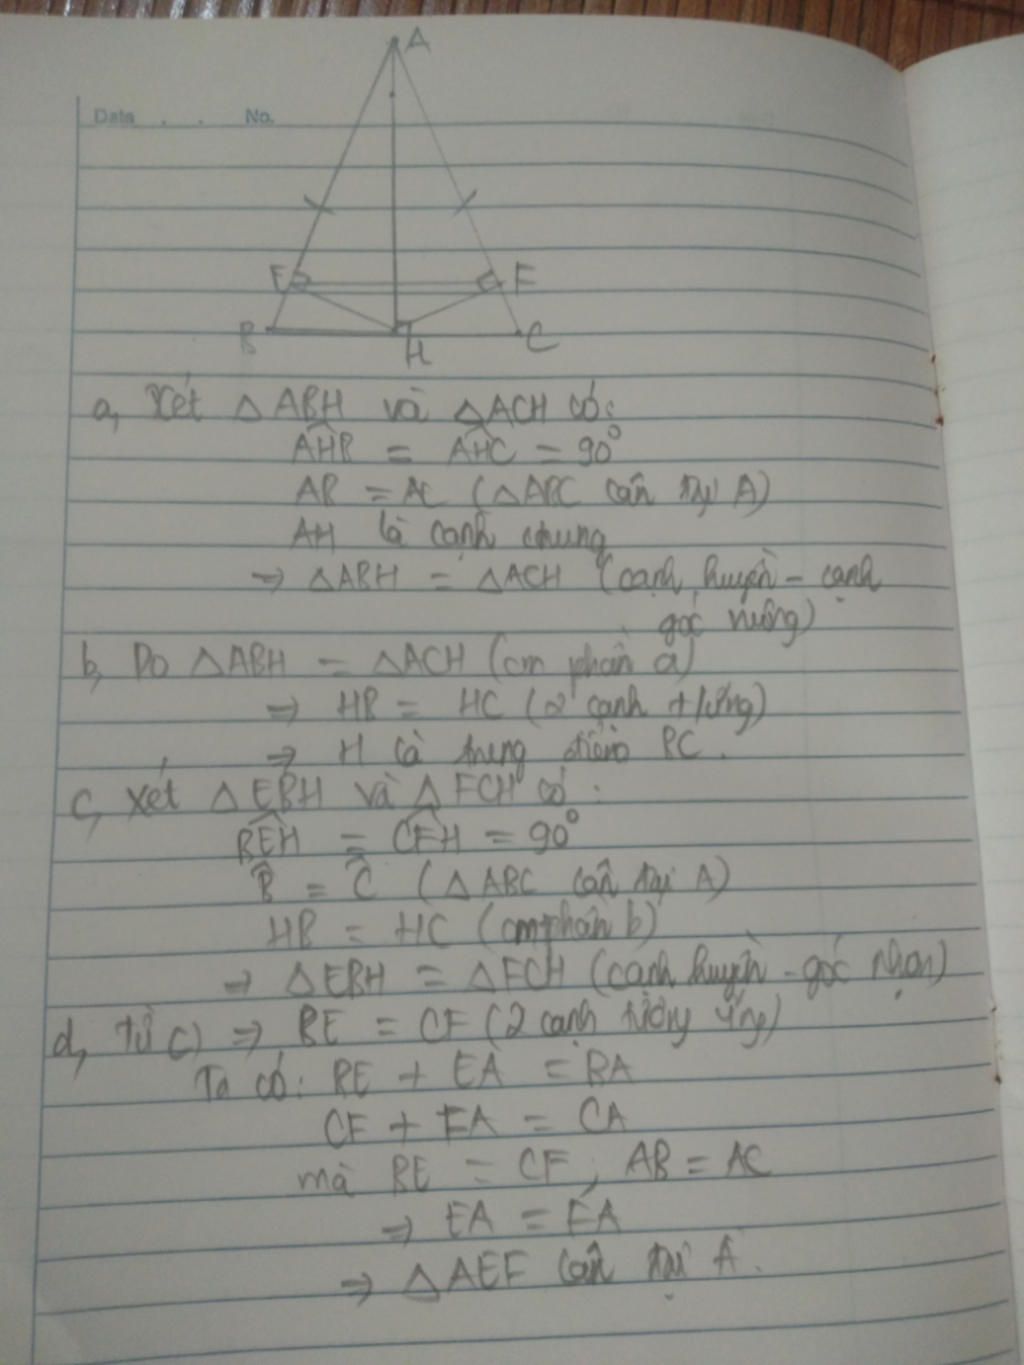 A
Date . . No.
E F
B H C
a, Xét △ ABH và △ACH có:
AHB = AHC = 90°
AB = AC (△ABC cân tại A)
AH là cạnh chung
⇒ △ABH = △ACH (cạnh huyền - cạnh
góc vuông)
b, Do △ABH = △ACH (cm phần a)
⇒ HB = HC (2 cạnh t/ứng)
⇒ H là trung điểm BC.
c, Xét △ EBH và △ FCH có:
BEH = CFH = 90°
B̂ = Ĉ (△ ABC cân tại A)
HB = HC (cm phần b)
⇒ △EBH = △FCH (cạnh huyền - góc nhọn)
d, Từ c) ⇒ BE = CF (2 cạnh tương ứng)
Ta có: BE + EA = BA
CF + FA = CA
mà BE = CF, AB = AC
⇒ EA = FA
⇒ △AEF cân tại A.